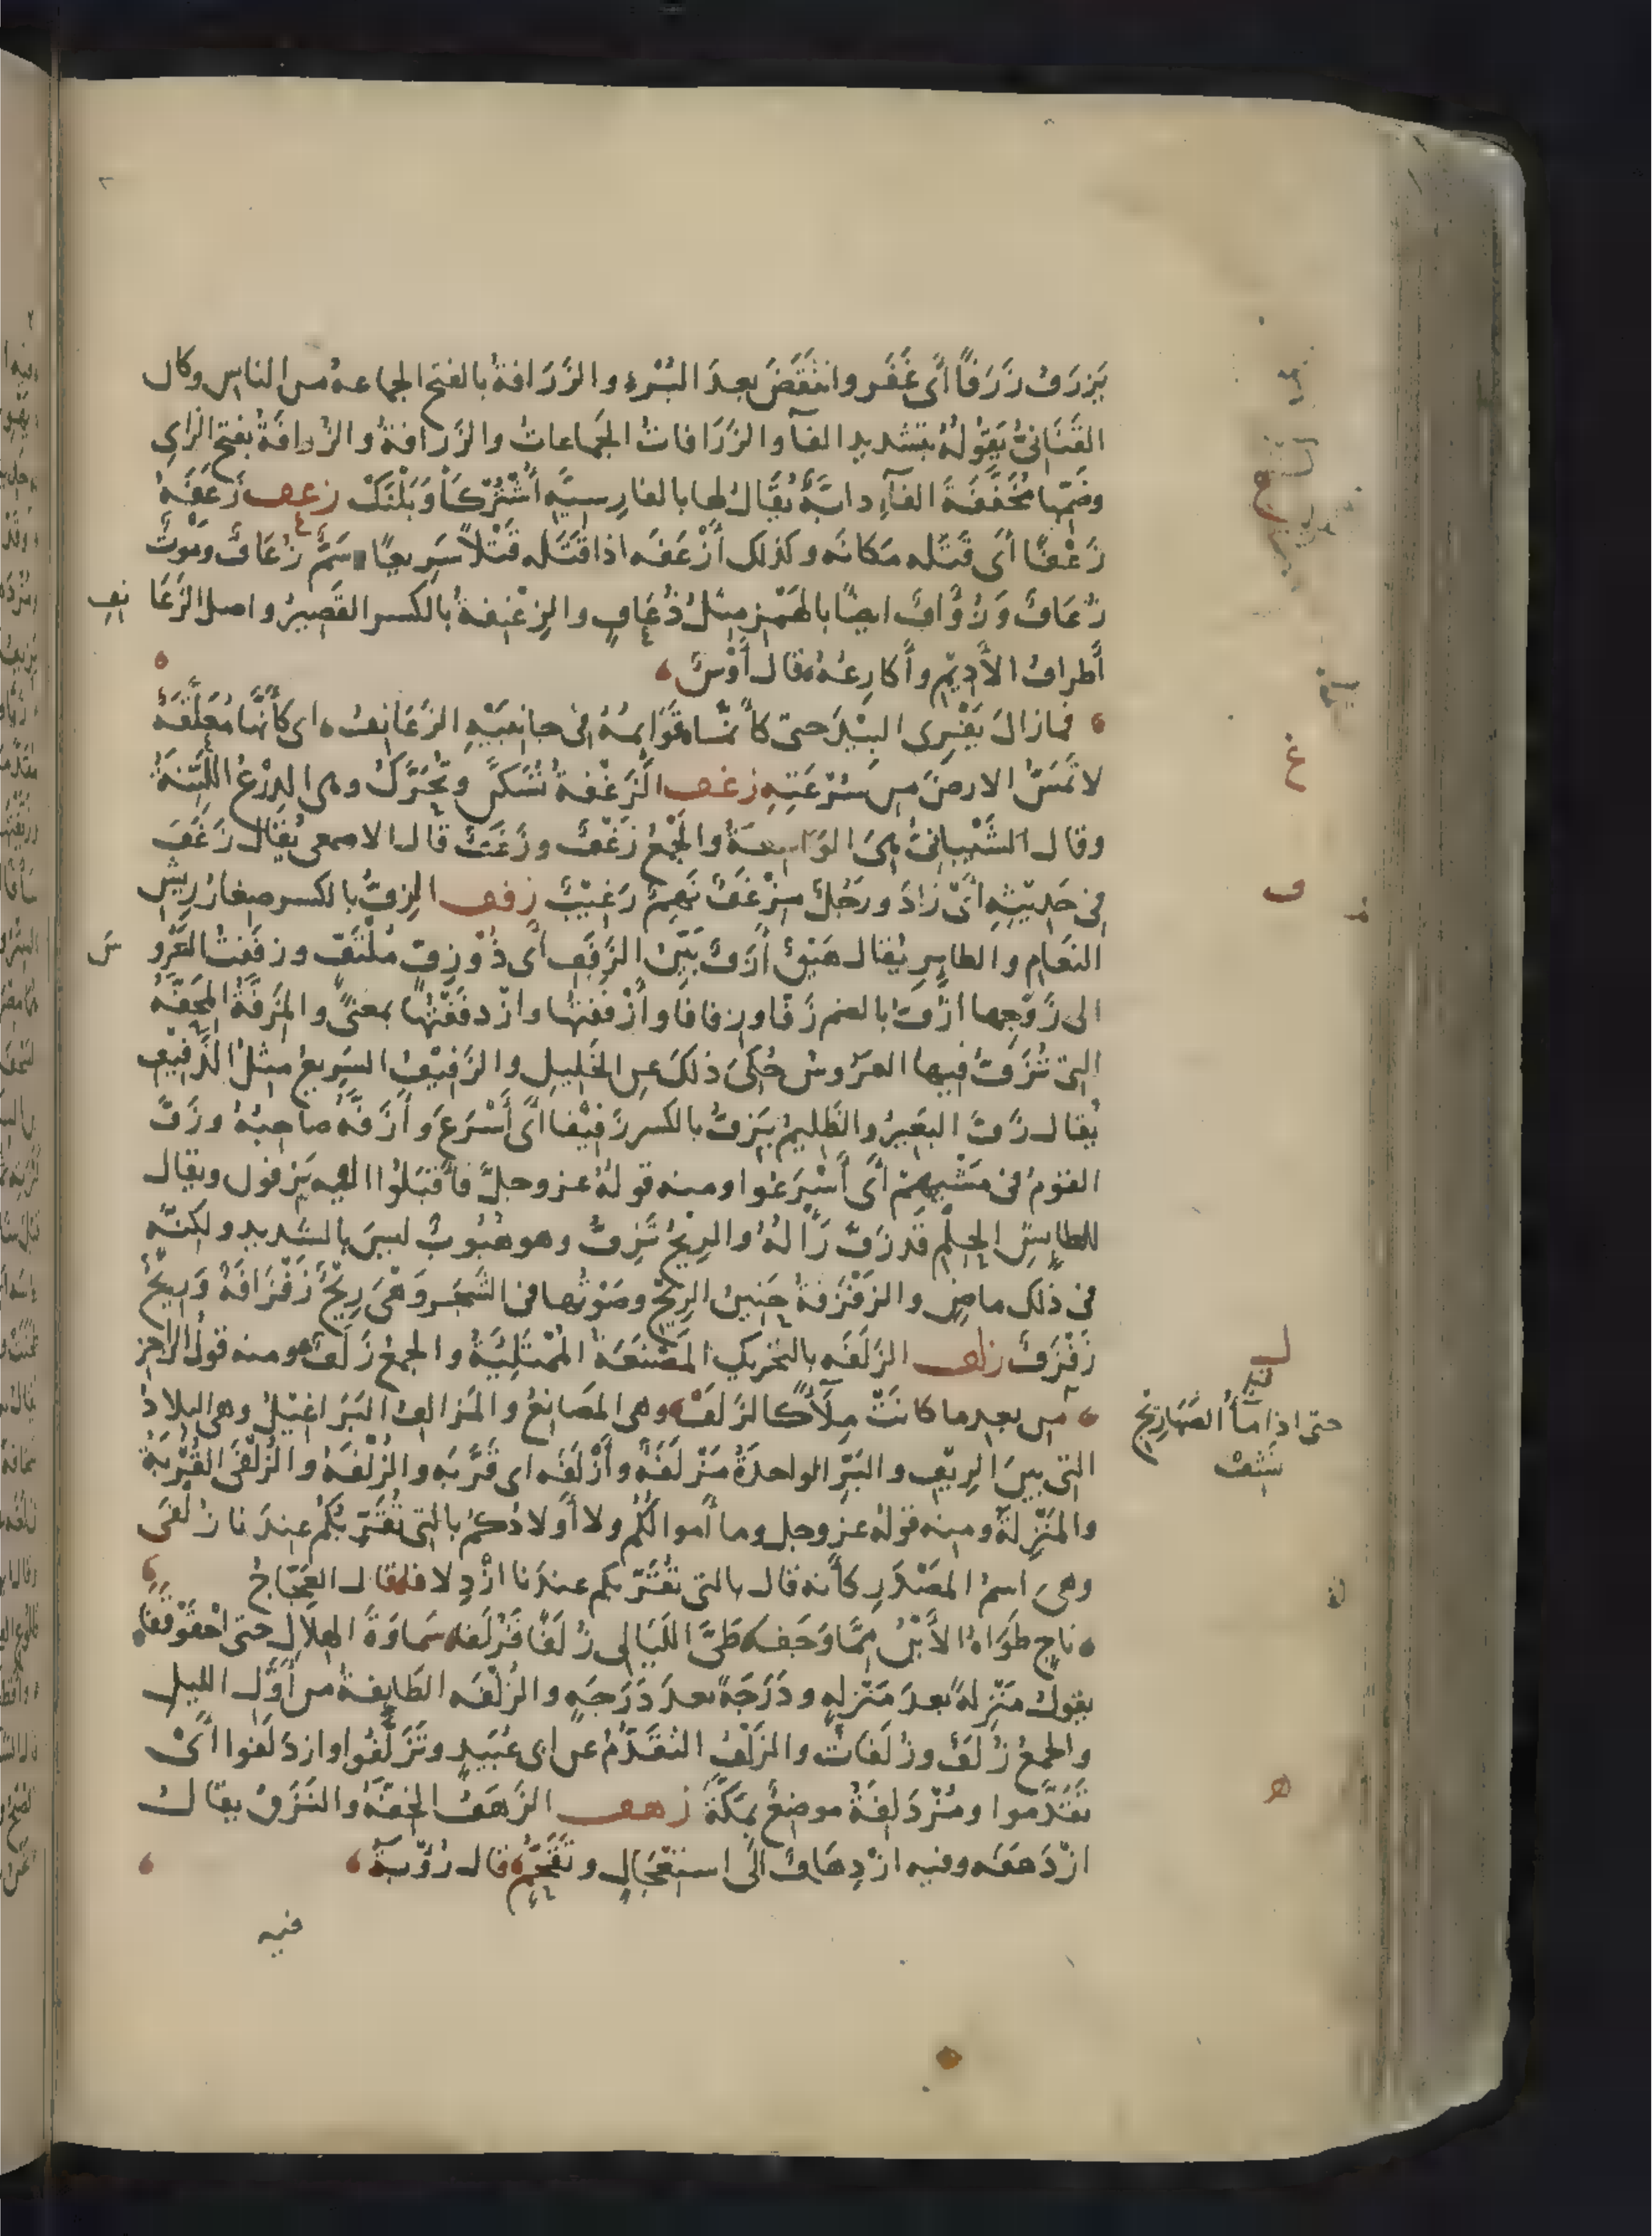 يَزرَفُ زَرَفاً أى غَفَر وانتَقَضَ بعدَ البُرْءِ والزَرَافةُ بالفتح الجماعةُ من الناس وكان
القَنَانىُّ يَقوْلهُ بتشديد الفآ والزَرَافاتُ الجَماعاتُ والزَرافةُ والزُرافَةُ بفتح الزاى
وضَمّها مُخَفَّفَةَ الفآءِ دابَّةٌ يُقَالُ لها بالفارِسيَّه أُشْتُرْكَاْوَبَلْنَكْ زعف زَعَفَهُ
زَعْفًا أى قَتَله مَكانَه وكذلك أَزْعَفَه اذا قَتَلَه قَتْلاً سَرِيعًا وسَمٌّ زُعَافٌ ومَوْتٌ
زُعَافٌ وَزُؤَافٌ ايضًا بالهَمْزِ مِثلُ ذُعَافٍ والزِعْنِفةُ بالكسر القَصِيرُ واصل الزَعَا نِفِ
أَطرافُ الأَدِيْمِ وأَكارِعُهُ قال أَوْسٌ
فمازالَ يَفْرِى البِيْدَ حتى كأنما قَوَائمُهُ فى جانِبَيْهِ الزَعَانِفُ اى كأَنَّها مُعَلَّقَةٌ
لا تَمَسُّ الارضَ من سُرْعَتِهِ زغف الزَغْفةُ تُسَكَّنُ وتُحَرَّكُ وهى الدِرْعُ اللَّيِّنَةُ
وقال الشَّيْبانىُّ هىَ الوَاسِعَةُ والجَمْعُ زَغْفٌ وزَغَفٌ قال الاصمعى يُقالُ زَغَفَ
فى حَدِيْثِهِ أىْ زَادَ ورَجُلٌ مِزْغَفٌ نَهِمٌ رَغِيْبٌ زفف الزِفُّ بالكسر صِغارُ رِيشِ
النعَامِ والطايرِ يُقال هَيْقٌ أَزَفُّ بَيِّنُ الزَفَفِ أى ذُوْ زِفٍّ مُلْتَفٍّ وزفَفْتُ العَرُو سَ
الى زَوْجِها ازُفُّ بالضم زَفًا وزِفافا وأَزْفَفْتُها وازْدفَفْتُها بمعنىً والمِزَفَّةُ المِحَفَّهُ
التى تُزَفُّ فيها العَرُوسُ حُكِىَ ذلكَ عن الخَلِيلِ والزَفِيْفُ السَرِيعُ مثلُ الذَفِيْفِ
يُقال زَفَّ البَعِيرُ والظَلِيمُ يَزِفُّ بالكسر زَفِيْفا أىْ أَسْرَعَ وأَزَفَّهُ صاحِبُهُ وزَفَّ
القومُ فى مَشْيِهِمْ أى أَسْرَعُوا ومنه قولهُ عز وجلَّ فأَقبَلُوا اليه يَزفون ويقال
للطايِشِ الحِلْمِ قَد زَفَّ رَأْلُهُ والرِيْحُ تَزِفُّ وهو هُبُوبٌ ليسَ بالشديد ولكنَّه
فى ذلك ماضٍ والزَفْزَفةُ حَنِينُ الرِيْحِ وصَوْتُها فى الشَجَر وَهْىَ رِيْحٌ زَفْزَافَةٌ وَرِيْحٌ
زَفْزَفٌ زلف الزَلَفَه بالتحريك المَصْنَعَةُ المُمْتَلِيَةُ والجمعُ زَلَفٌ ومنه قولُ الراجز
حتى اذا مآءُ الصَهَارِيْجِ
نَشَفْ
من بعدِ ما كانَتْ مِلآًءً كالزَلَفْ وهى المَصَانِعُ والمَزالِفُ البَرَاغِيْلُ وهى البلادُ
التى بينَ الرِيْفِ والبَرِّ الواحدةُ مَزْلَفَةٌ وأَزْلَفَه اى قَرَّبَه والزُلْفَةُ والزُلْفَى القُرْبَةُ
والمَنْزِلةُ ومنه قولهُ عز وجل وما أَموالُكُم ولا أَولادُكمْ بالتى تُقَرِّبُكُمْ عندَنا زُلْفَى
وهى اسمُ المصْدَرِ كأنه قال بالتى تُقَرّبكم عندَنا ازْدِلافا قال العَجَّاجُ
ناجٍ طَوَاهُ الأَيْنُ مِمَّا وَجَفَا طَىَّ اللَيَالى زُلَفًا فَزُلَفا سَمَاوَةَ الهِلاَلِ حتى احْقَوْقَفَا
يقولُ مَنْزِلةً بعدَ مَنْزِلهٍ ودَرَجَةً بعدَ دَرَجَهٍ والزُلْفَه الطَايِفةُ من أَوَّلِ الليل
والجمعُ زُلَفٌ وزُلَفَاتٌ والزَلَفُ التَقَدُّمُ عن ابى عُبَيدٍ وتَزَلَّفُوا وازدَلَفوا أىْ
تَقَدَّموا ومُزْدَلِفَةُ موضِعٌ بمَكَّةَ زهف الزَهَفُ الخِفَّةُ والنَزَقُ يقال
ازْدَهَفَه وفيه ازْدِهَافٌ اىْ استِعْجَالٍ وتَقَحُّمٌ قال رُؤْبَةُ
فيه